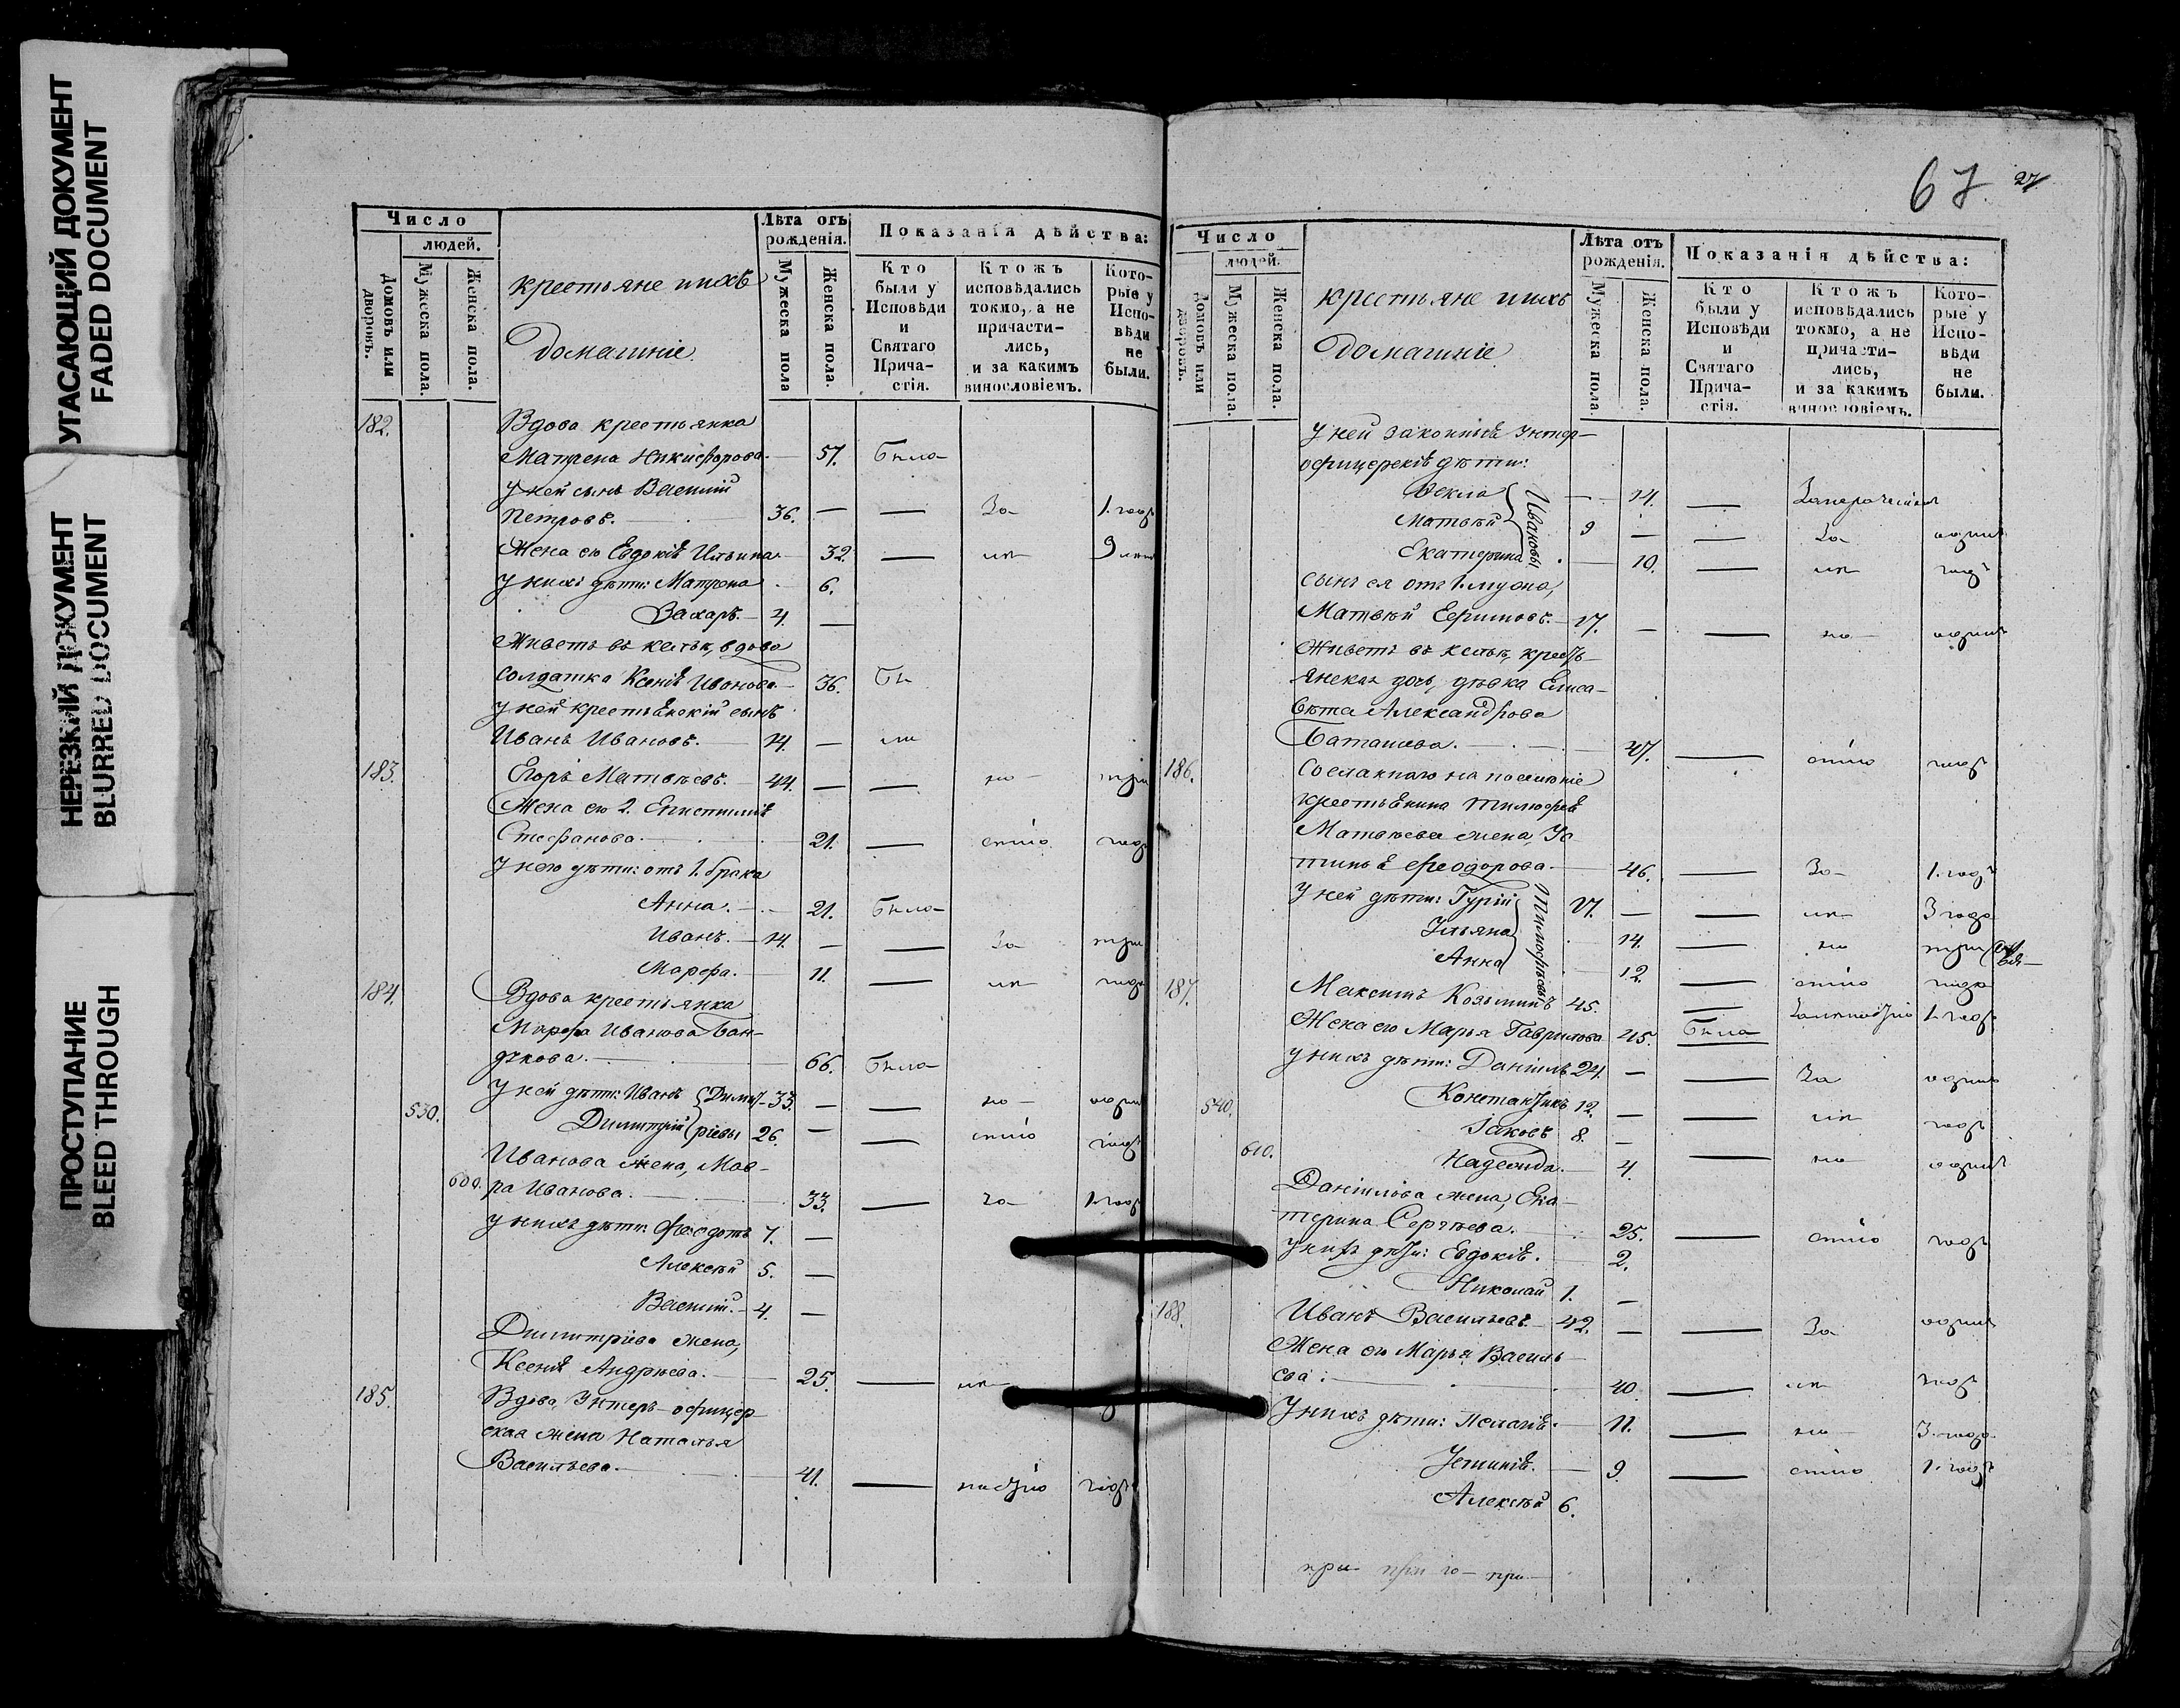 УГАСАЮЩИЙ ДОКУМЕНТ
FADED DOCUMENT
НЕРЕЗКИЙ ДОКУМЕНТ
BLURRED DOCUMENT
ПРОСТУПАНИЕ
BLEED THROUGH
Число
людей.
Домовъ или дворовъ.
Мужеска пола.
Женска пола.
крестьяне ихъ
домашніе
Лѣта отъ рожденія.
Мужеска пола
Женска пола.
Показанія дѣйства:
Кто были у Исповѣди и Святаго Причастія.
Ктожъ исповѣдались токмо, а не причастились, и за какимъ винословіемъ.
Которые у Исповѣди не были.
182. Вдова крестьянка
Матрена Никифорова. 57. Была
У ней сынъ Василій
Петровъ. 36. — — За 1. годъ
Жена его Евдокія Ильина 32. —
У нихъ дѣти: Матрона 6.
Захаръ. 4. —
Живетъ въ кельѣ, вдова
солдатка Ксенія Иванова. 36.
У ней крестьянскій сынъ
Иванъ Ивановъ. 14. —
183. Егоръ Матвѣевъ. 44. — —
Жена его 2. Епистимія
Стефанова. 21. — годъ
У него дѣти: отъ 1. брака
Анна. 21. Была
Иванъ. 14. — — За три
Марфа. 11. — года
184. Вдова крестьянка
Марфа Иванова Бан-
дукова. 66. Была
530. У ней дѣти: Иванъ Дими- 33. — — одинъ
Димитрій ріевы 26. — — годъ
Иванова жена, Мав-
600. ра Иванова. 33. — 1. годъ
У нихъ дѣти: Ѳеодотъ 7. —
Алексѣй 5. —
Василій. 4. —
Димитріева жена,
Ксенія Андрѣева. 25. —
185. Вдова, Унтеръ-офицер-
ская жена Наталья
Васильева. 41. — годъ
67. 27
Число
людей.
Домовъ или дворовъ.
Мужеска пола.
Женска пола.
крестьяне ихъ
домашніе
Лѣта отъ рожденія.
Мужеска пола.
Женска пола.
Показанія дѣйства:
Кто были у Исповѣди и Святаго Причастія.
Ктожъ исповѣдались токмо, а не причастились, и за какимъ винословіемъ.
Которые у Исповѣди не были.
У ней законныѣ Унтер-
офицерскіѣ дѣти:
Ѳекла Ивановы — 14. —
Матвѣй 9 — — За одинъ
Екатерина 10. — годъ
Сынъ ея отъ 1. мужа,
Матвѣй Ефимовъ. 17. — — одинъ
Живетъ въ кельѣ, кресть-
янская дочь, дѣвка Елиса-
вѣта Александрова
Баташева. 47. — годъ
186. Сосланнаго на поселеніе
крестьянина Тимофея
Матвѣева жена, Ус-
тинья Ѳеодорова. 46. — За 1. годъ
У ней дѣти: Гурій Тимофѣевы 17. — — 3 года
Ульяна 14. — три
Анна 12. — года
187. Максимъ Козьминъ 45. — 1. годъ
Жена его Марья Гаврилова 45. Была
У нихъ дѣти: Даніилъ 24. — — За одинъ
540. Константинъ 12. — — годъ
Іаковъ 8. —
610. Надежда. 4. — одинъ
Даніилова жена, Ека-
терина Сергѣева. 25. — годъ
У нихъ дѣти: Евдокія. 2.
Николай 1. —
188. Иванъ Васильевъ. 42. — — За одинъ
Жена его Марья Василь-
ева: 40. — годъ
У нихъ дѣти: Пелагія. 11. — 3. года
Устинія. 9. — 1. годъ
Алексѣй 6.
при при го- при-